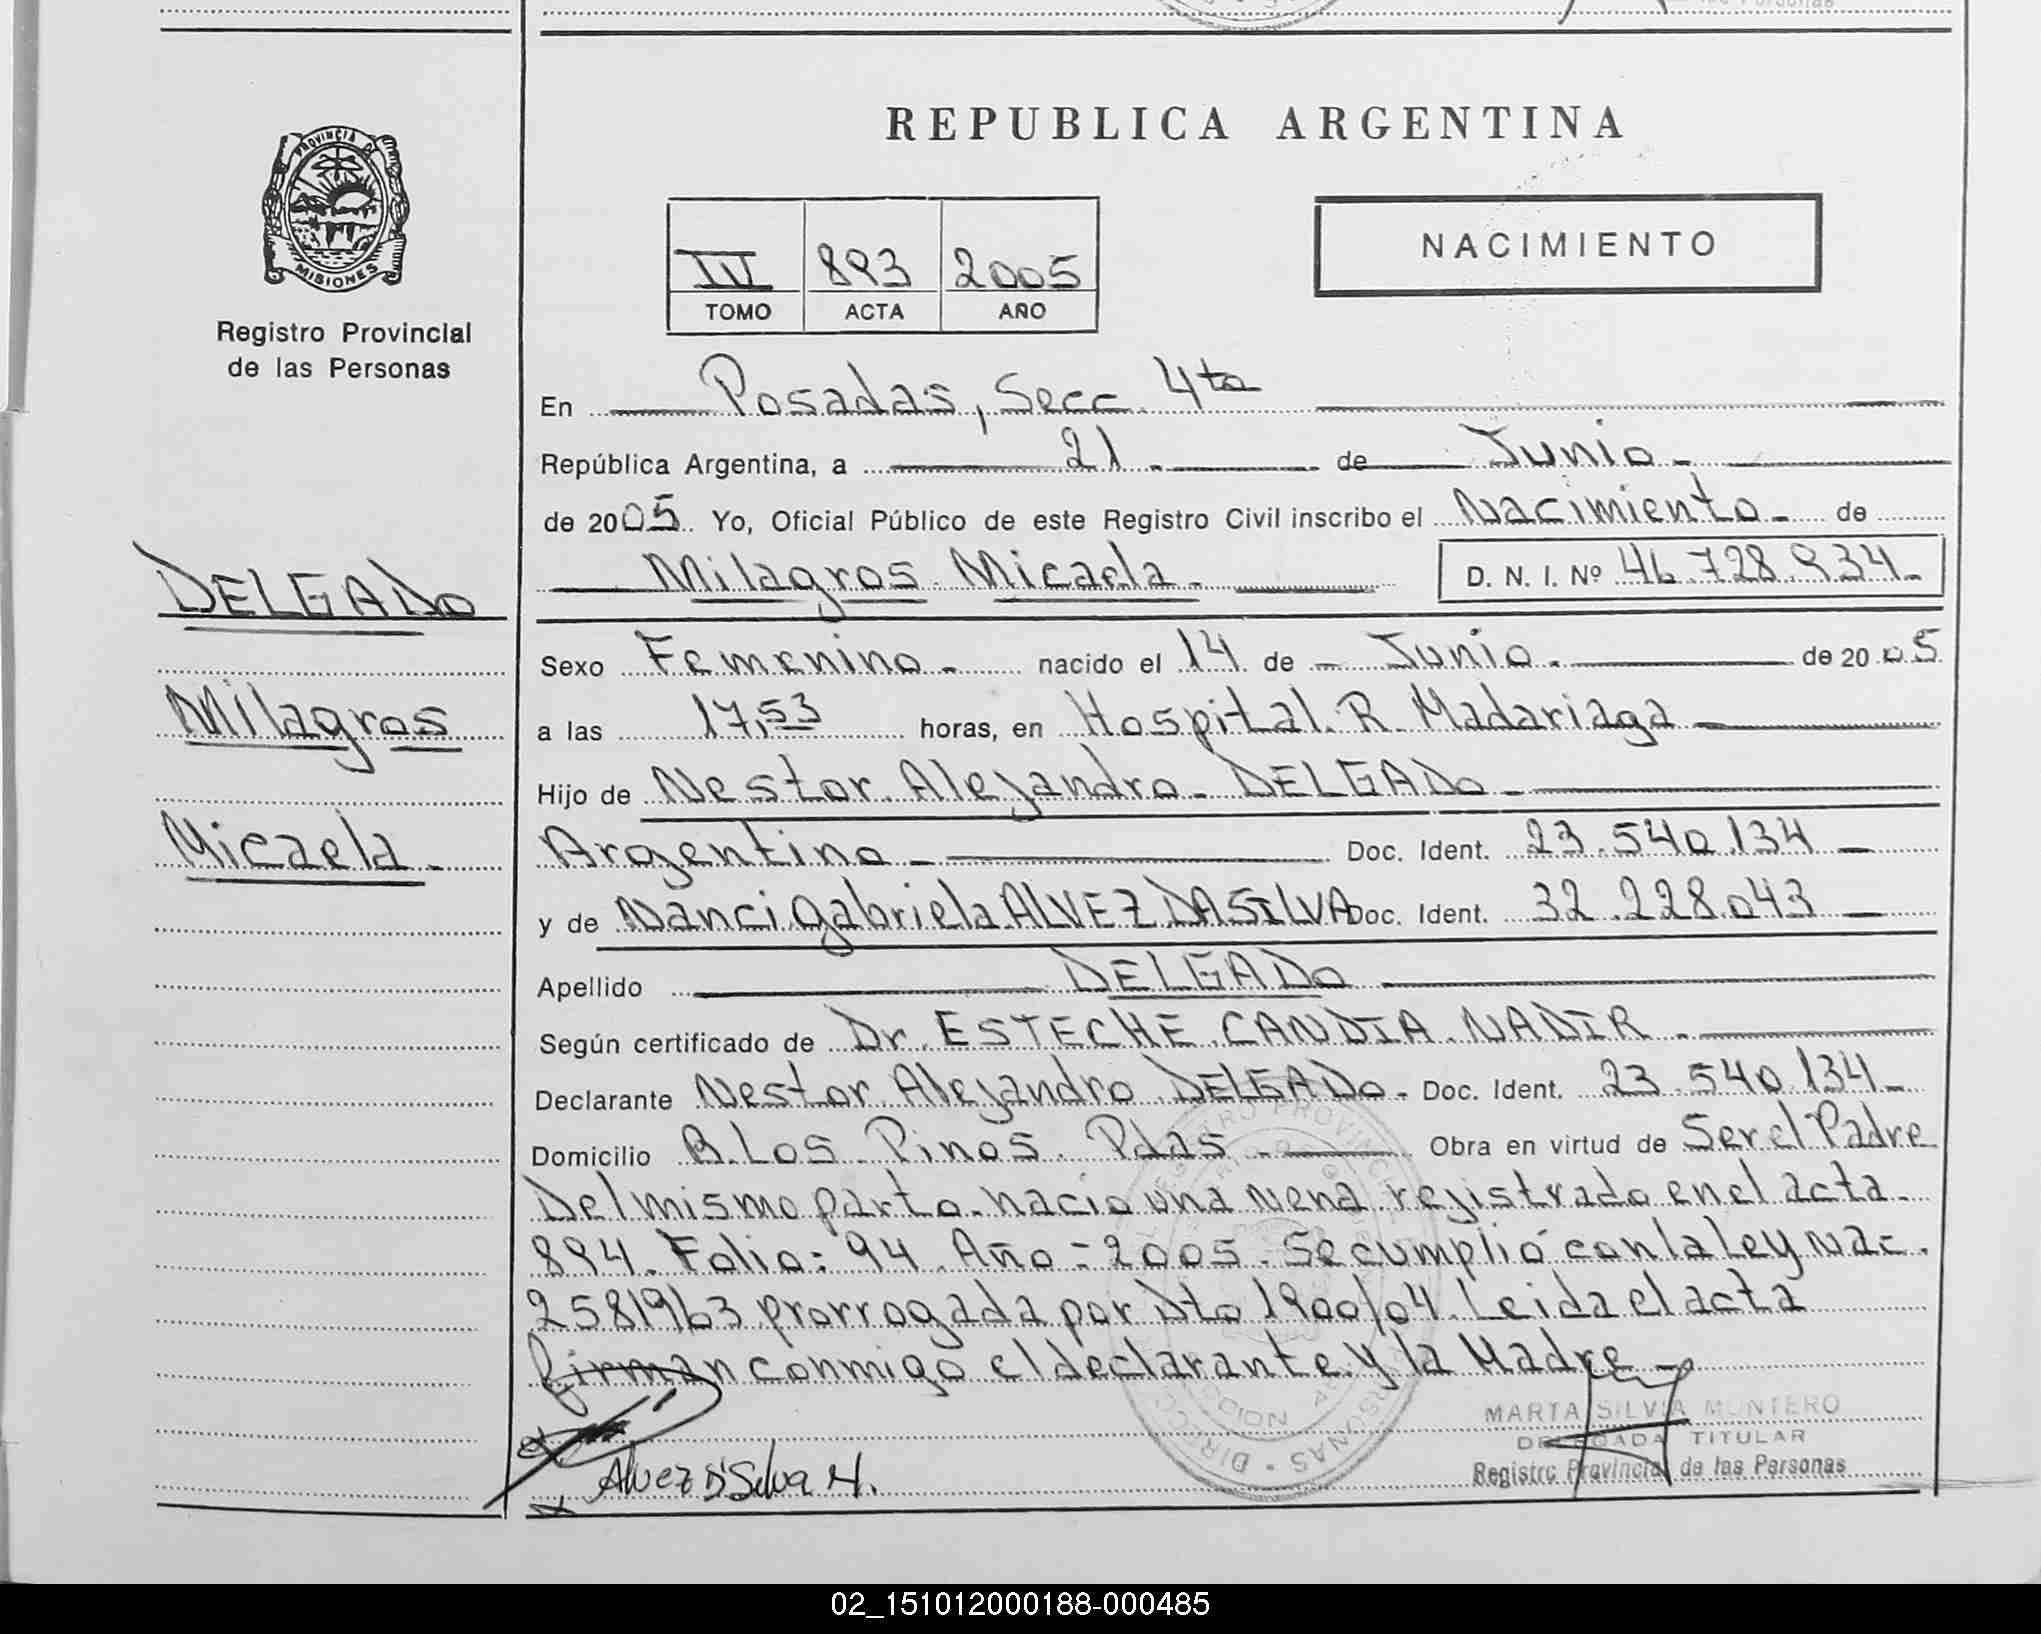 REPUBLICA ARGENTINA
PROVINCIA DE
MISIONES
Registro Provincial
de las Personas
III 893 2005
TOMO ACTA AÑO
NACIMIENTO
En Posadas, Secc. 4ta
República Argentina, a 21 de Junio
de 2005 Yo, Oficial Público de este Registro Civil inscribo el Nacimiento de
Milagros Micaela D. N. I. Nº 46.728.934
DELGADO
Milagros
Micaela
Sexo Femenino nacido el 14 de Junio de 2005
a las 17,53 horas, en Hospital R. Madariaga
Hijo de Nestor Alejandro DELGADO
Argentino Doc. Ident. 23.540.134
y de Nanci Gabriela ALVEZ DA SILVA Doc. Ident. 32.228.043
Apellido DELGADO
Según certificado de Dr. ESTECHE CANDIA NADIR
Declarante Nestor Alejandro DELGADO Doc. Ident. 23.540.134
Domicilio B. Los Pinos Pdas Obra en virtud de Ser el Padre
Del mismo parto nacio una nena registrado en el acta
894. Folio: 94. Año = 2005. Se cumplió con la Ley Nac.
25819/63 prorrogada por Dto 1900/04. Leida el acta
firman conmigo el declarante y la Madre
Alvez D'Silva N.
MARTA SILVIA MONTERO
DELEGADA TITULAR
Registro Provincial de las Personas
02_151012000188-000485